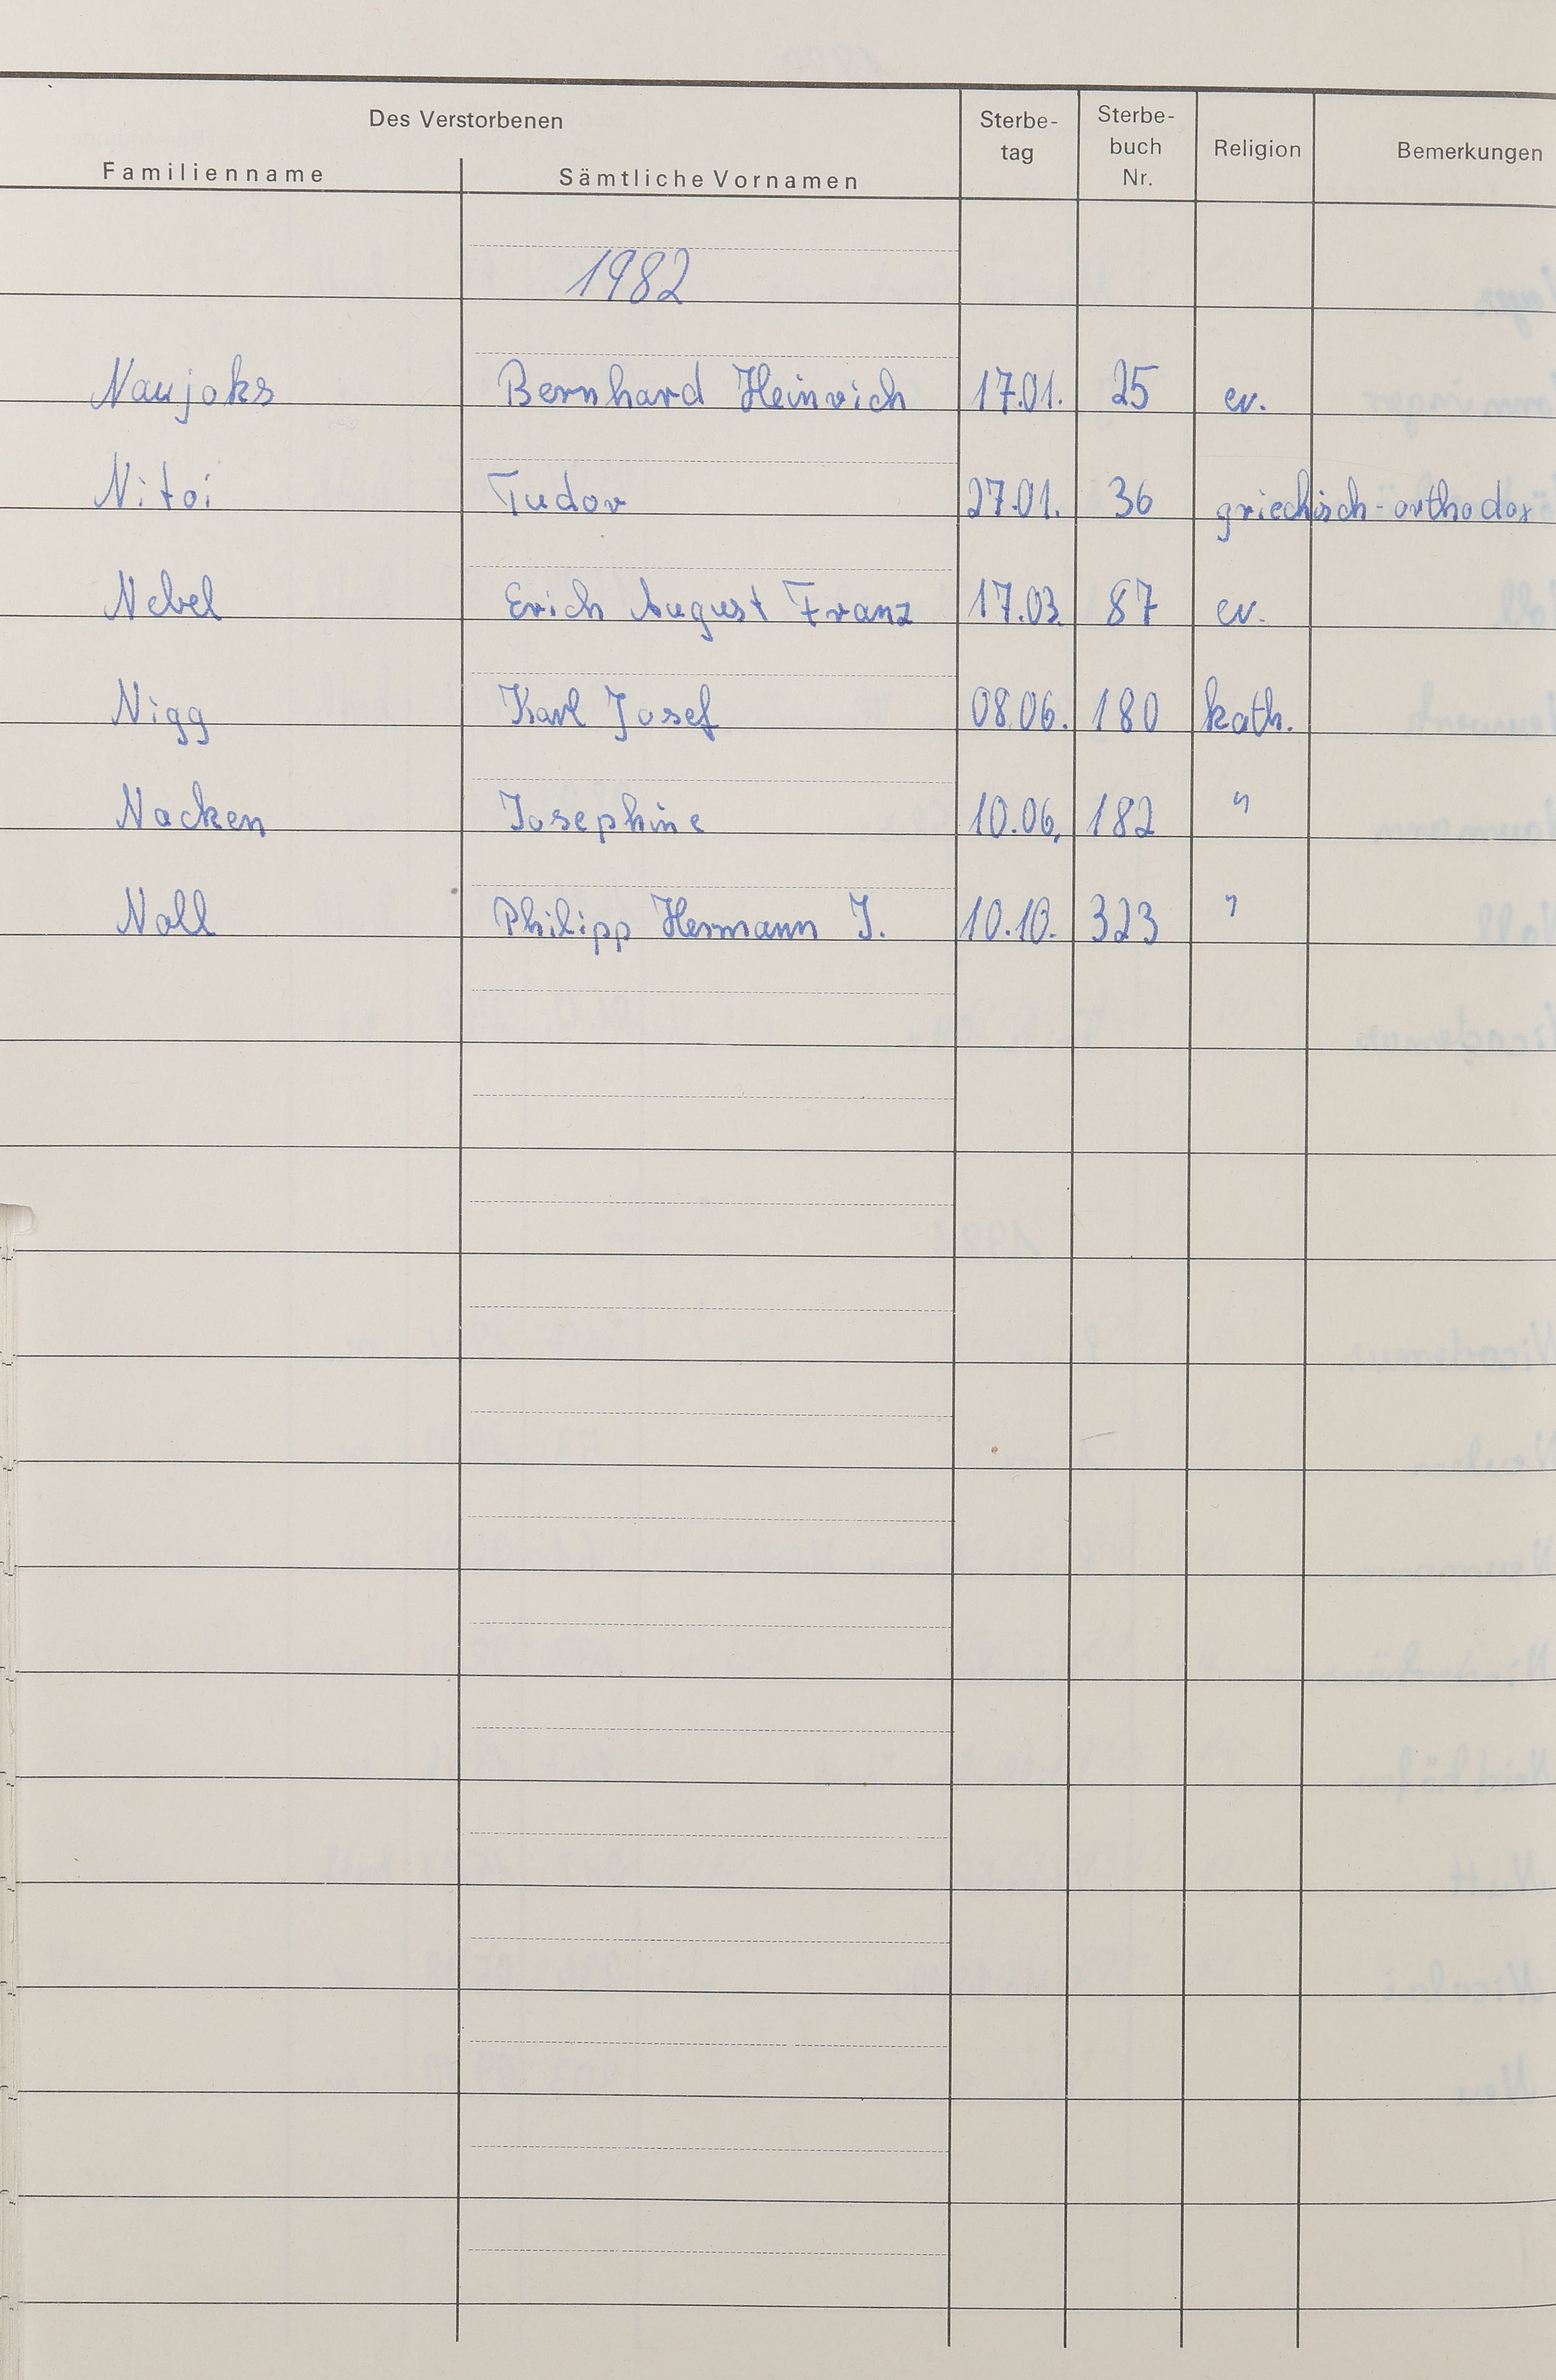 Des Verstorbenen
Familienname Sämtliche Vornamen Sterbe-tag Sterbe-buch Nr. Religion Bemerkungen
1982
Naujoks Bernhard Heinrich 17.01. 25 ev.
Nitoi Tudor 27.01. 36 griechisch-orthodox
Nebel Erich August Franz 17.03. 87 ev.
Nigg Karl Josef 08.06. 180 kath.
Nacken Josephine 10.06. 182 "
Noll Philipp Hermann J. 10.10. 323 "